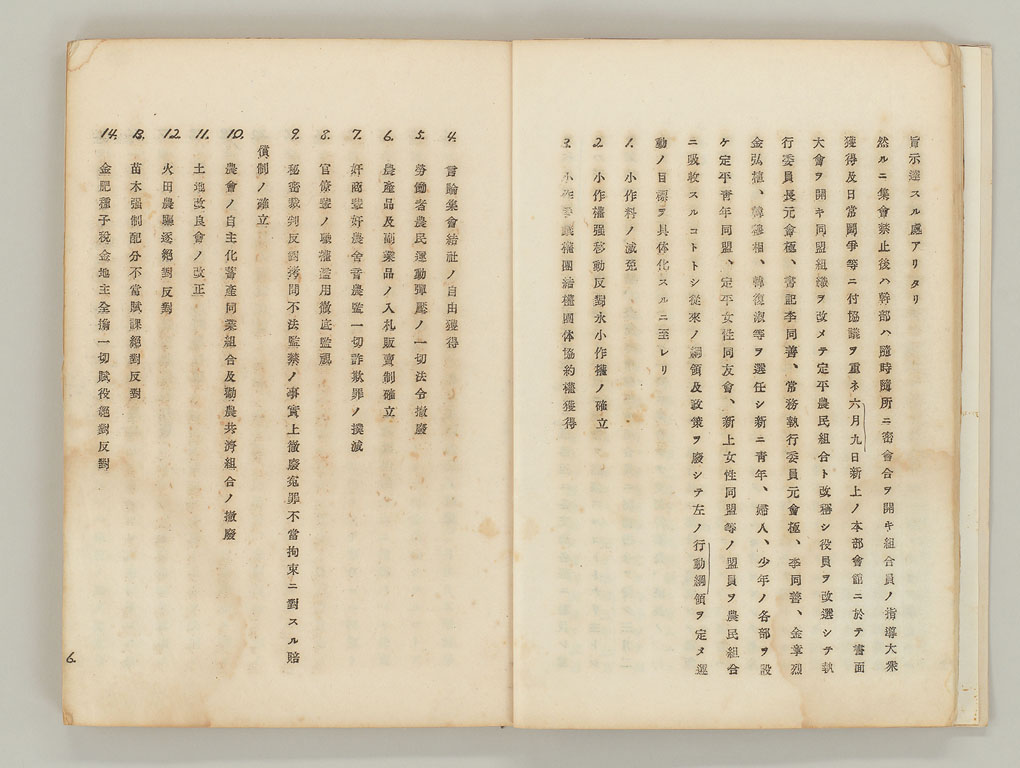 旨示達スル處アリタリ
然ルニ集會禁止後ハ幹部ハ隨時隨所ニ密會合ヲ開キ組合員ノ指導大衆
獲得及日常鬪爭等ニ付協議ヲ重ネ六月九日新上ノ本部會館ニ於テ書面
大會ヲ開キ同盟組織ヲ改メテ定平農民組合ト改稱シ役員ヲ改選シテ執
行委員長元會極、書記李同善、常務執行委員元會極、李同善、金章烈
金弘 、韓 相、韓復淑等ヲ選任シ新ニ靑年、婦人、少年ノ各部ヲ設
ケ定平靑年同盟、定平女性同友會、新上女性同盟等ノ盟員ヲ農民組合
ニ吸收スルコトトシ從來ノ綱領及政策ヲ廢シテ左ノ行動綱領ヲ定メ運
動ノ目標ヲ具体化スルニ至レリ
1. 小作料ノ減免
2. 小作權强移動反對永小作權ノ確立
3. 小作爭議權團結權團体協約權獲得
4. 言論集會結社ノ自由獲得
5. 勞働者農民運動彈壓ノ一切法令撤廢
6. 農產品及副業品ノ入札販賣制確立
7. 奸商輩奸農舍音農監一切詐欺罪ノ撲滅
8. 官僚輩ノ職權濫用徹底監視
9. 秘密裁判反對拷問不法監禁ノ事實上徹廢寃罪不當拘束ニ對スル賠
償制ノ確立
10. 農會ノ自主化畜產同業組合及勸農共濟組合ノ撤廢
11. 土地改良會ノ改正
12. 火田農驅逐絕對反對
13. 苗木强制配分不當賦課絕對反對
14. 金肥種子稅金地主全擔一切賦役絕對反對
6.